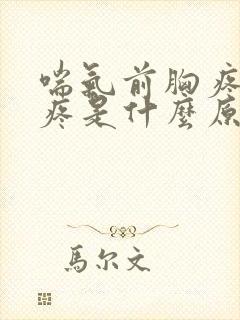 喘氣前胸疼
疼是什麼原
馬尔文